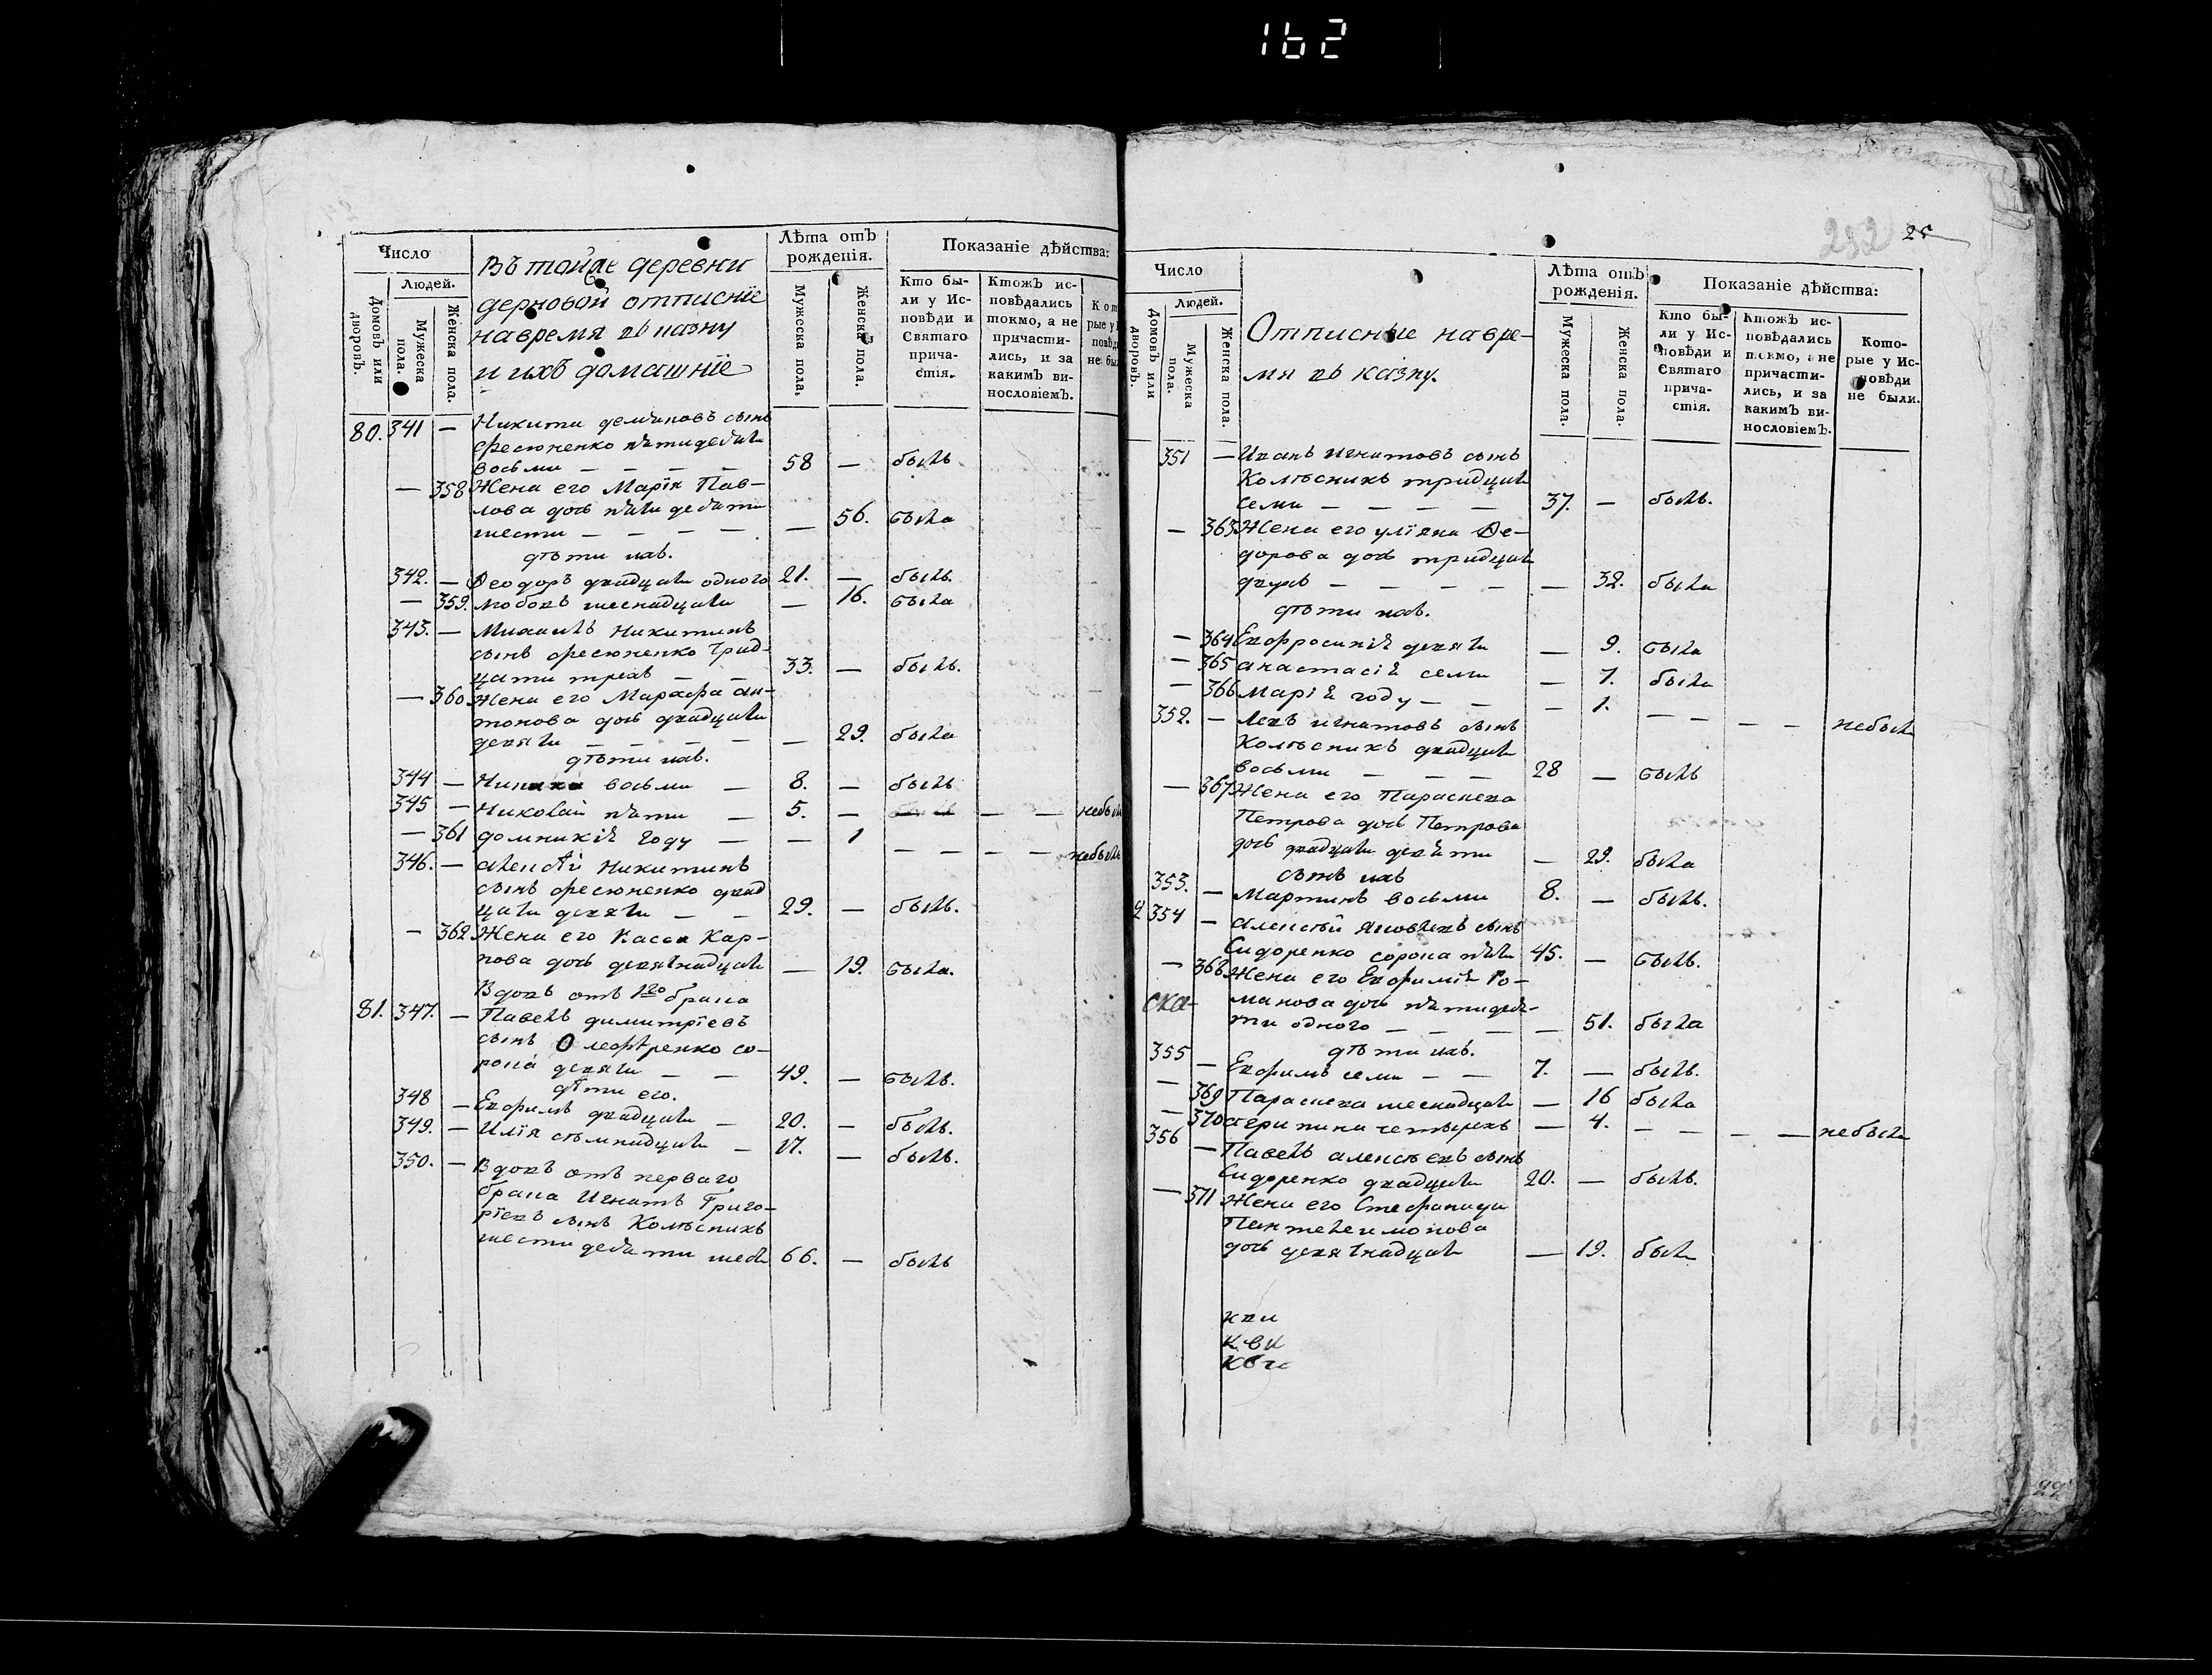 162
Число
Людей.
Домовъ или дворовъ.
Мужеска пола.
Женска пола.
Въ тойже деревни
дерновой отписніе
навремя въ казну
и ихъ домашніе
Лѣта отъ рожденія.
Мужеска пола.
Женска пола.
Показаніе дѣйства:
Кто были у Исповѣди и Святаго причастія.
Ктожъ исповѣдались токмо, а не причастились, и за какимъ винословіемъ.
80. 341 — Никита демяновъ сынъ
фесюненко пятидесяти
восьми — — — — 58 — былъ
— 358 Жена его Марія Пав-
лова дочь пятидесяти
шести — — — — — 56. была
дѣти ихъ.
342. — Ѳеодоръ двадцати одного 21. — былъ.
— 359. любовь шеснадцати — 16. была
343. — Михаилъ Никитинъ
сынъ фесюненко трид-
цати трехъ — — 33. — былъ.
— 360 Жена его Марѳа ан-
тонова дочь двадцати
девяти — — — — — 29. была
дѣти ихъ.
344 — восьми — 8. — былъ
345 — Николай пяти — 5. — — — небылъ
— 361 домникія году — — 1 — — — — небыла
346. — алексѣй Никитинъ
сынъ фесюненко двад
цати девяти — — 29. — былъ.
— 362 Жена его Васса Кар-
пова дочь девятнадцати — 19. была.
Вдовъ отъ 1го брака
81. 347. — Павелъ димитріевъ
сынъ Олефѣренко со-
рока девяти — — 49. — былъ.
дѣти его.
348 — Евфимъ двадцати — 20. — былъ.
349. — Илія семнадцати — 17. — былъ.
350. — Вдовъ отъ перваго
брака Игнатъ Григо-
ріевъ сынъ Колѣсникъ
шестидесяти шести 66. — былъ
252
25
Число
Людей.
Домовъ или дворовъ.
Мужеска пола.
Женска пола.
Отписные навре-
мя въ казну.
Лѣта отъ рожденія.
Мужеска пола.
Женска пола.
Показаніе дѣйства:
Кто были у Исповѣди и Святаго причастія.
Ктожъ исповѣдались токмо, а не причастились, и за какимъ винословіемъ.
Которые у Исповѣди не были.
351 — Иванъ игнатовъ сынъ
Колѣсникъ тридцати
семи — — — — 37. — былъ.
— 363 Жена его уліяна Ѳе-
дорова дочь тридцати
двухъ — — — — — 32. была
дѣти ихъ.
— 364 Евфросинія девяти — 9. была
— 365 анастасія семи — 7. была
— 366 Марія году — — — 1. — — — — небыла
352. — Левъ игнатовъ сынъ
Колѣсникъ двадцати
восьми — — — 28 — былъ
— 367 Жена его Параскева
Петрова дочь Петрова
дочь двадцати девяти — 29. была
сынъ ихъ
353. — Мартинъ восьми 8. — былъ.
2 354 — алексѣй яковлевъ сынъ
Сидоренко сорока пяти 45. — былъ.
— 368 Жена его Евфимія Ро-
ска- манова дочь пятидеся-
ти одного — — — — 51. была
дѣти ихъ.
355 — Евфимъ семи — — 7. — былъ.
— 369 Параскева шеснадцати — 16 была
— 370 катерина четырехъ — 4. — — — — небыла
356 — Павелъ алексѣевъ сынъ
Сидоренко двадцати 20. — былъ.
— 371 Жена его Стефанида
Пантелеимонова
дочь девятнадцати — 19. была